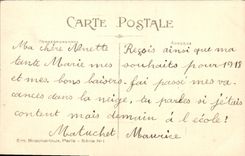 CARTE POSTALE
CORRESPONDANCE
ADRESSE
Ma chère Ninette
Reçois ainsi que ma
tante Marie mes souhaits pour 1918
et mes bons baisers. J'ai passé mes va-
cances dans la neige, tu parles si j'étais
content mais demain à l'école!
Matuchet Maurice
Paris